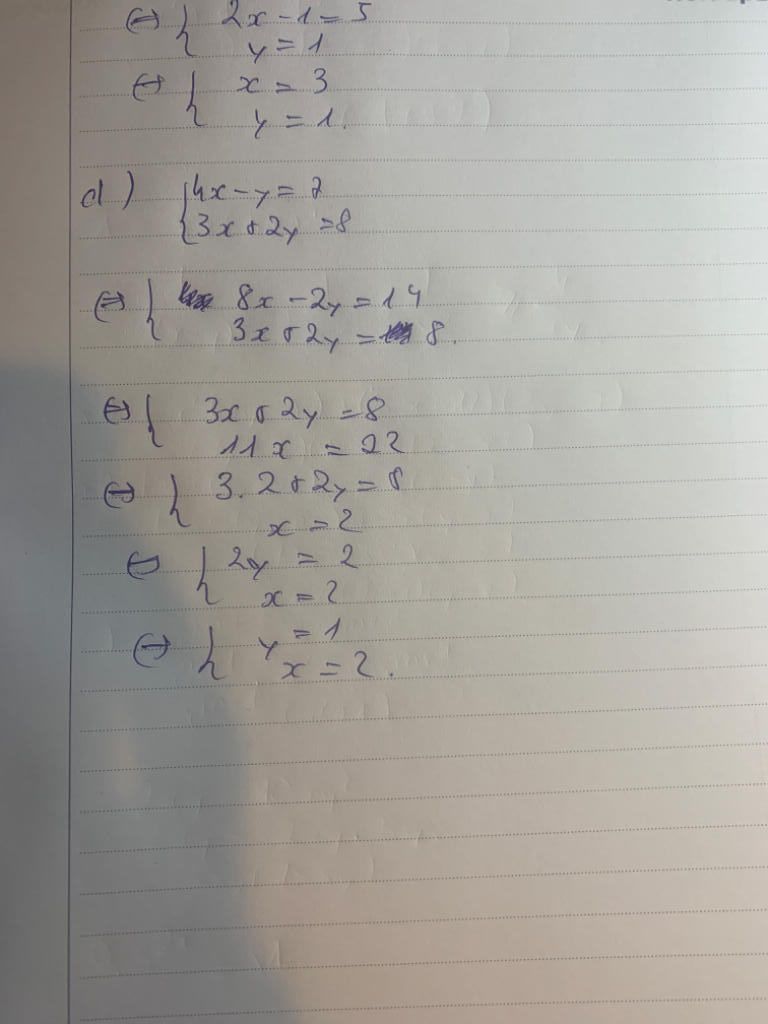 ⇔ { 2x - 1 = 5
y = 1
⇔ { x = 3
y = 1.
d) { 4x - y = 7
3x + 2y = 8
⇔ { 8x - 2y = 14
3x + 2y = 8.
⇔ { 3x + 2y = 8
11x = 22
⇔ { 3.2 + 2y = 8
x = 2
⇔ { 2y = 2
x = 2
⇔ { y = 1
x = 2.